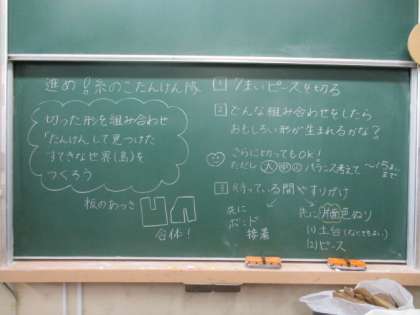 進め!!糸のこたんけん隊
切った形を組み合わせ
「たんけん」して見つけた
すてきな世界(島)を
つくろう
板のあつさ
合体!
1 1まいピースを切る
2 どんな組み合わせをしたら
おもしろい形が生まれるかな?
さらに切ってもOK!
ただし 大 中 小 バランス考えて
まで
3 待っている間やすりがけ
先に
ボンド
接着
先に 片面色ぬり
(1) 土台
(2) ピース